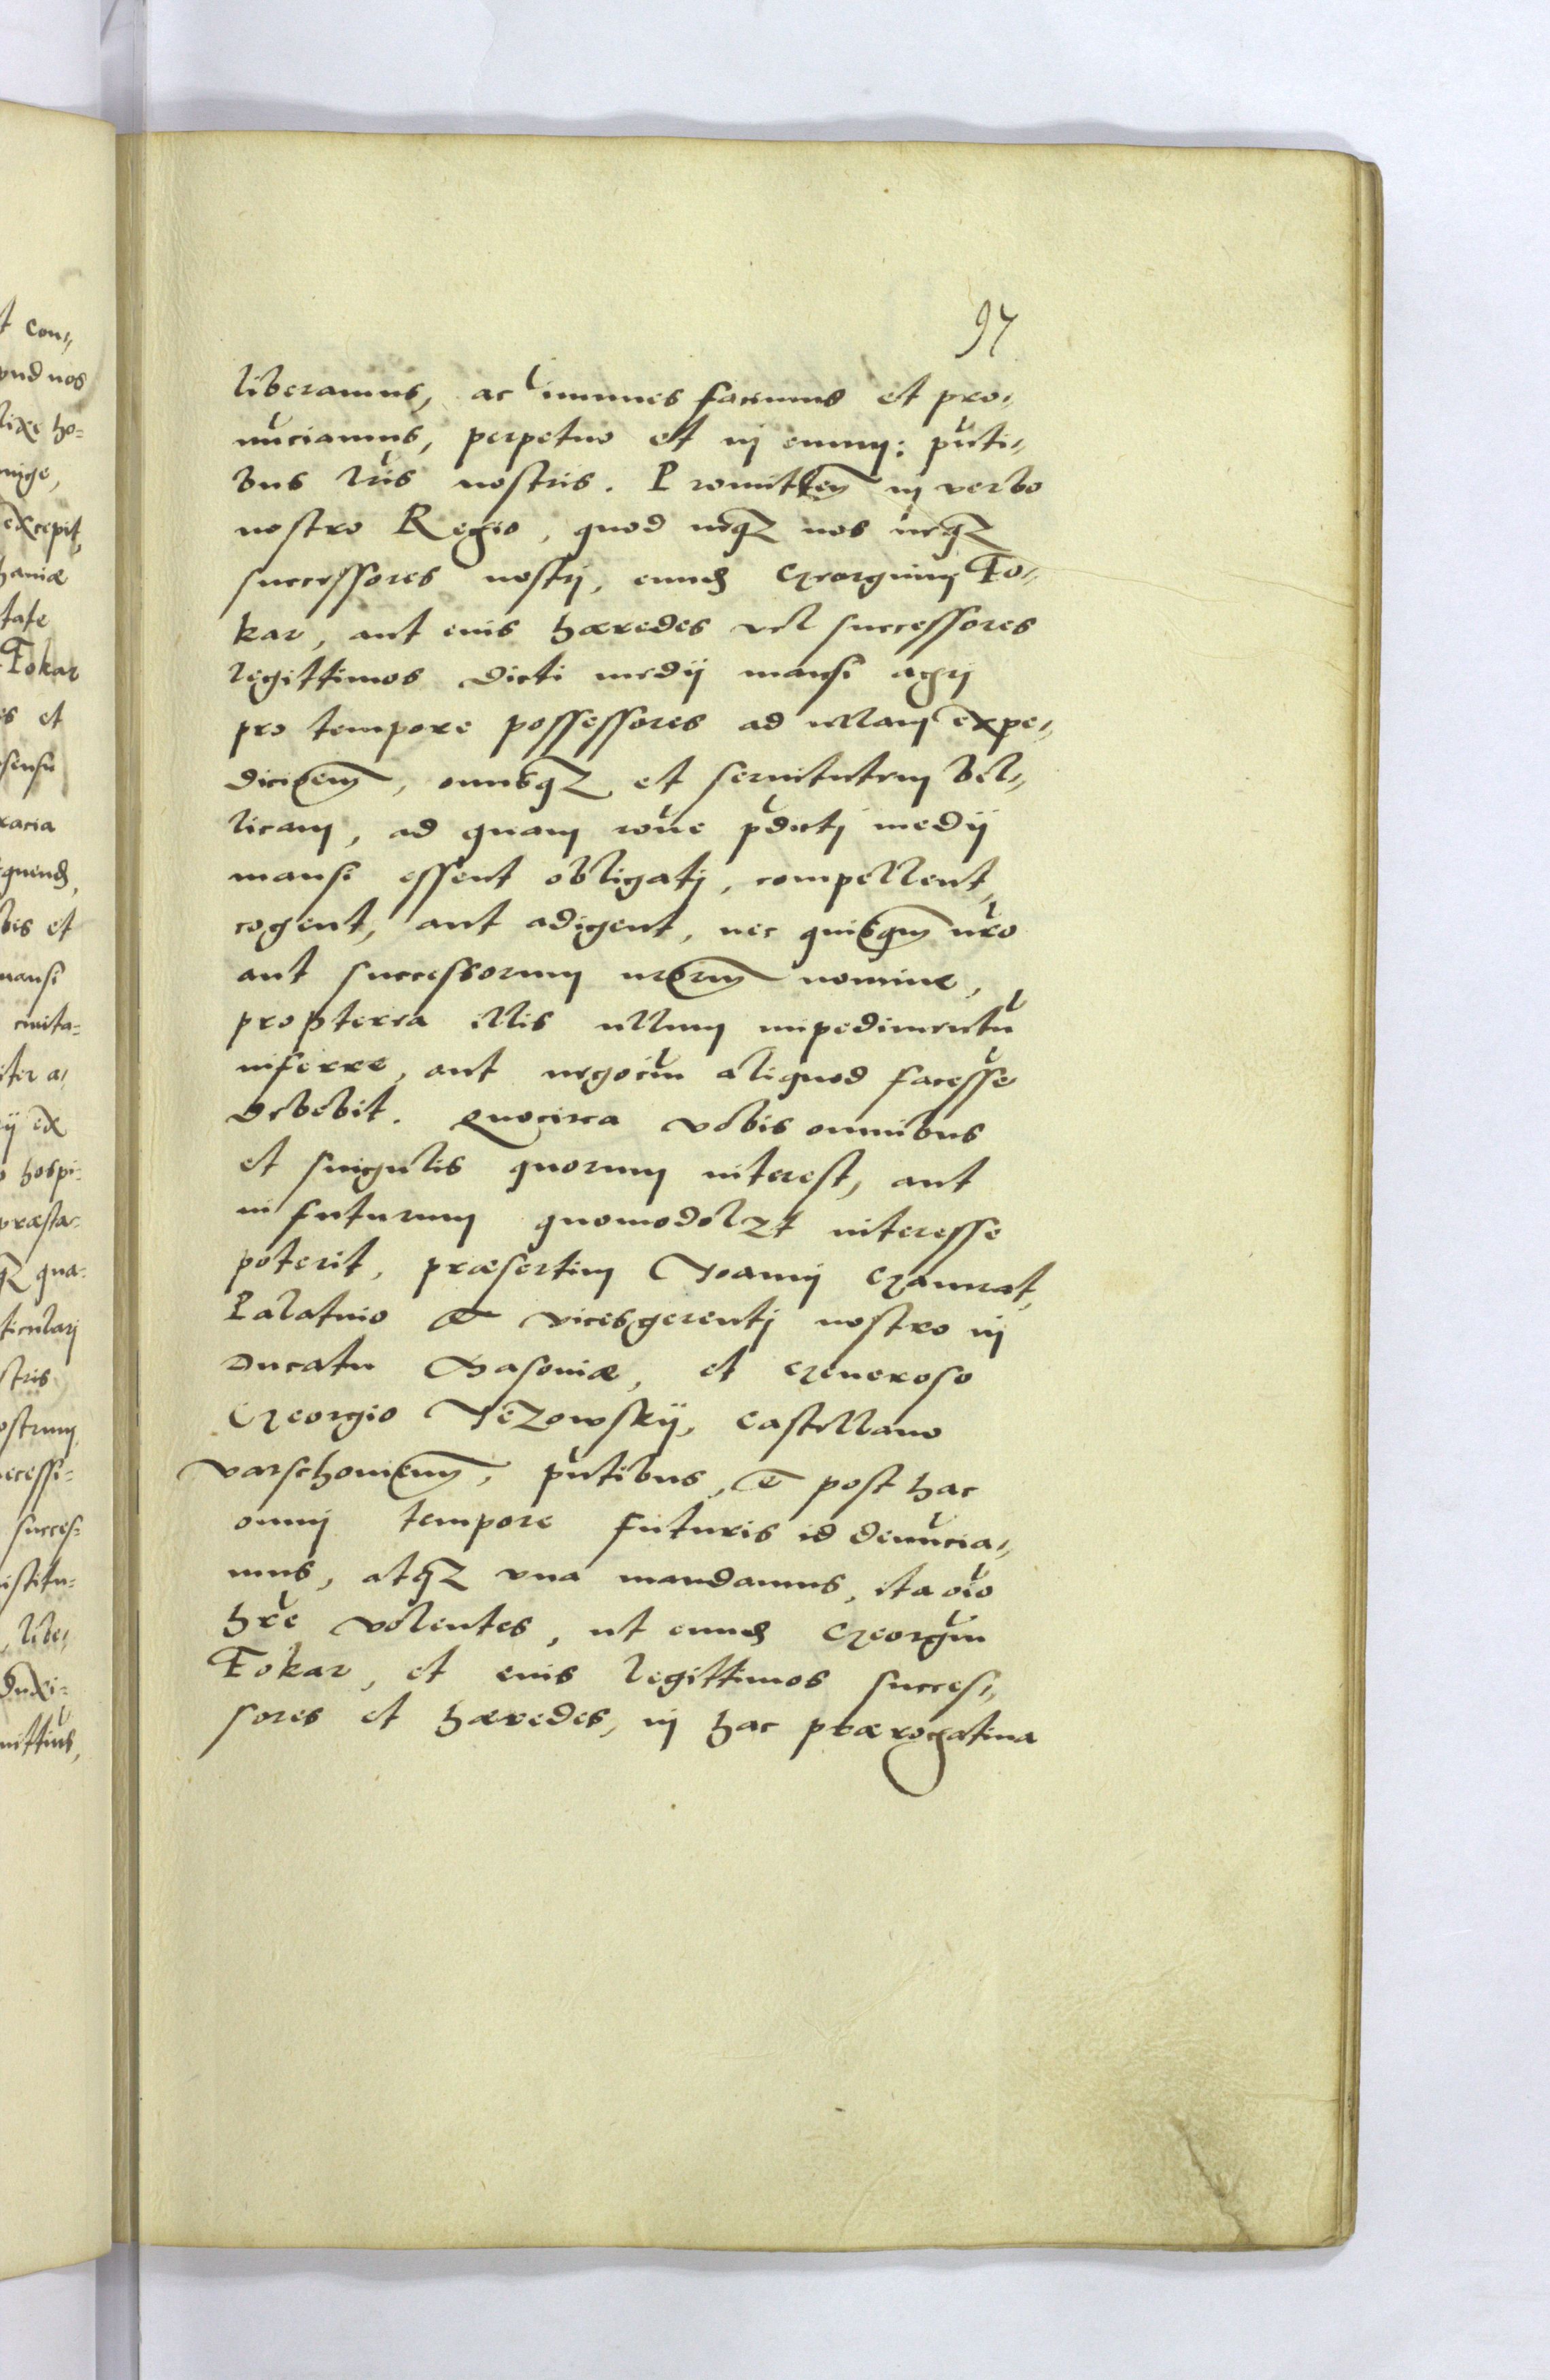 t con„
97
liberamus, ac immunes facimus et pro„
nũciamus, perpetuo et in euum: pñti„
bus lr̃is nostris. Promitten̄ in verbo
nostro Regio, quod neq₃ nos neq₃
successores nostri, eund Georgium Fo„
kar, aut eius hæredes vel successores
legittimos dicti medij mansi agri
pro tempore possessores ad ullam expe„
dicioem̄, onusq₃ et seruitutem bel„
licam, ad quam rõne pdicti medij
mansi essent obligati, compellent,
cogent, aut adigent, nec quisqm̄ nr̃o
aut successorum nr̃orum nomine,
propterea illis ullum impedimentũ
inferre, aut negociũ aliquod facesse
debebit. Quocirca vobis omnibus
et singulis quorum interest, aut
in futurum quomodolʒt interesse
poterit, præsertim Joanni Gamrat,
Palatino et vicesgerenti nostro in
Ducatu Masoniæ, et Generoso
Georgio Jezowskij, castellano
varschouien̄, pñtibus, et post hac
omni tempore futuris id denũcia„
mus, atq₃ vna mandamus, ita oĩo
hr̃e volentes, ut eund Georgiũ
Fokar, et eius legittimos succes„
sores et hæredes, in hac prærogatiua